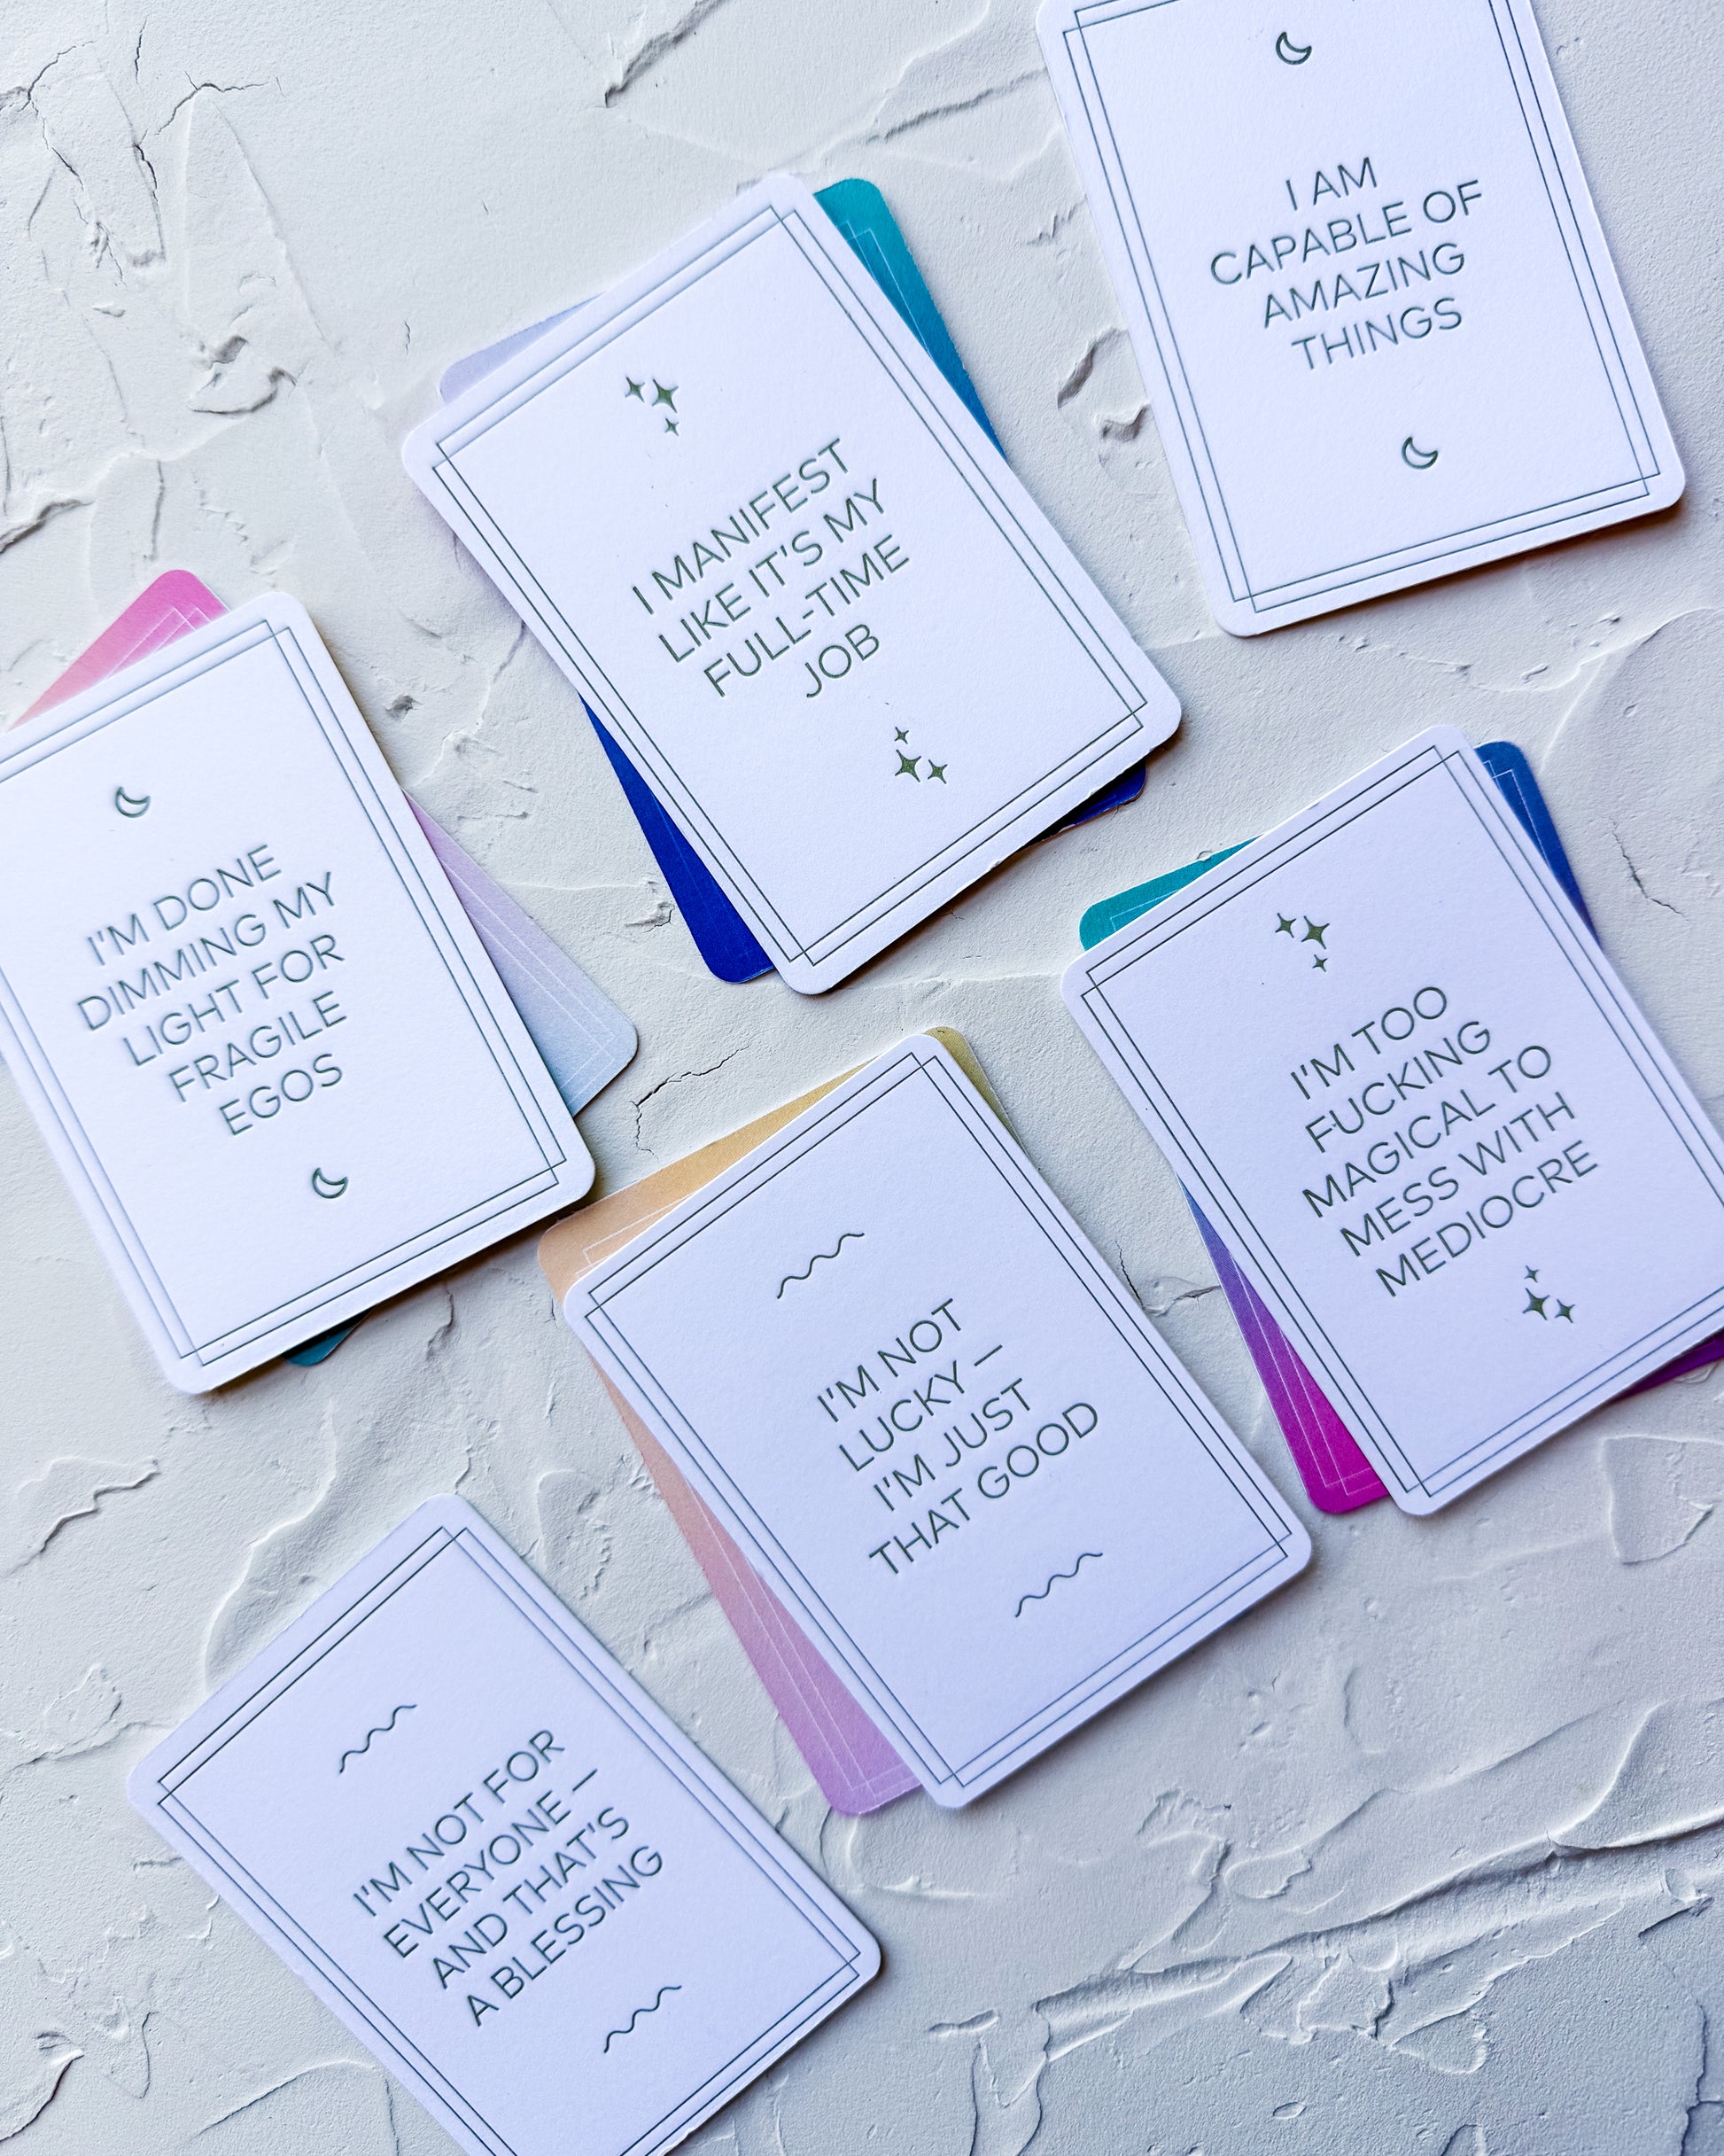 I AM
CAPABLE OF
AMAZING
THINGS
I MANIFEST
LIKE IT'S MY
FULL-TIME
JOB
I'M DONE
DIMMING MY
LIGHT FOR
FRAGILE
EGOS
I'M TOO
FUCKING
MAGICAL TO
MESS WITH
MEDIOCRE
I'M NOT
LUCKY –
I'M JUST
THAT GOOD
I'M NOT FOR
EVERYONE –
AND THAT'S
A BLESSING